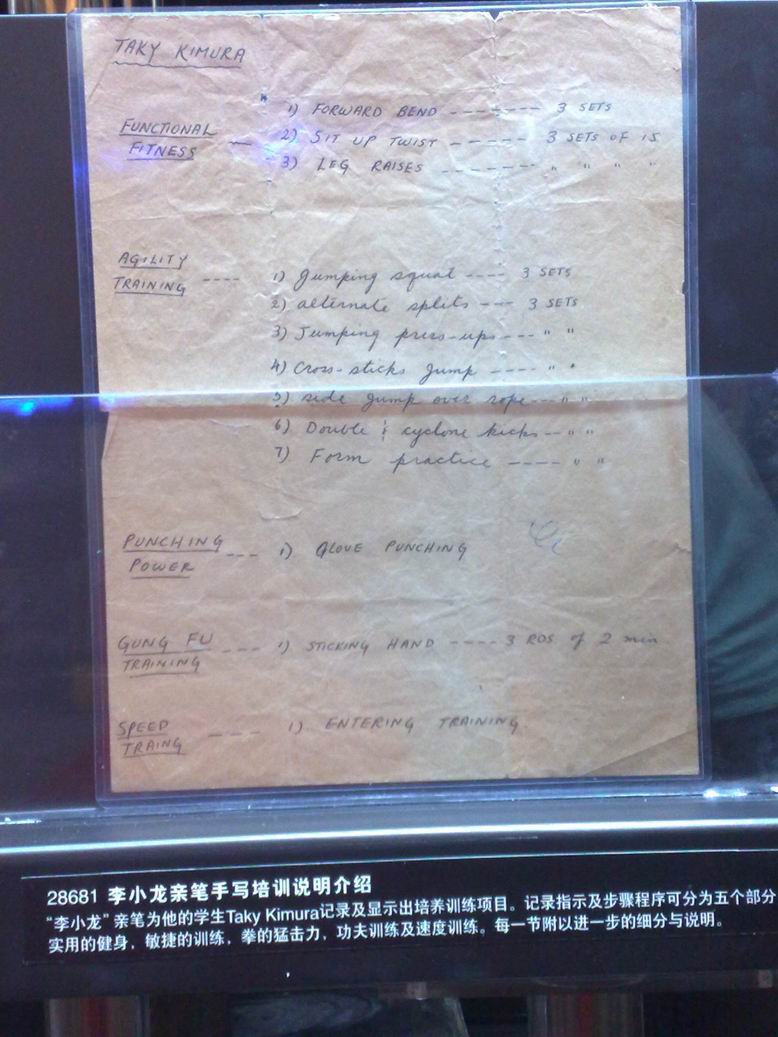 TAKY KIMURA
FUNCTIONAL FITNESS — 1) FORWARD BEND -------- 3 SETS
2) SIT UP TWIST ------- 3 SETS OF 15
3) LEG RAISES -------- " " " "
AGILITY TRAINING ---- 1) Jumping squat ---- 3 SETS
2) alternate splits --- 3 SETS
3) Jumping press-ups --- " "
4) Cross-sticks jump ---- " "
5) side jump over rope --- " "
6) Double & cyclone kicks -- " "
7) Form practice ---- " "
PUNCHING POWER --- 1) GLOVE PUNCHING
GUNG FU TRAINING --- 1) STICKING HAND ---- 3 RDS of 2 min
SPEED TRAING --- 1) ENTERING TRAINING
28681 李小龙亲笔手写培训说明介绍
“李小龙”亲笔为他的学生Taky Kimura记录及显示出培养训练项目。记录指示及步骤程序可分为五个部分
实用的健身，敏捷的训练，拳的猛击力，功夫训练及速度训练。每一节附以进一步的细分与说明。